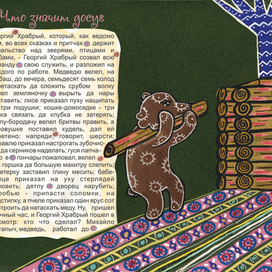 Что значит досуг
оргий Храбрый, который, как ведомо
м, во всех сказках и притчах держит
чальство над зверями, птицами и
бами, - Георгий Храбрый созвал всю
манду свою служить, и разложил на
ждого по работе. Медведю велел, на
баш, до вечера, семьдесят семь колод
ретаскать да сложить срубом волку
лел земляночку вырыть да нары
ставить; лисе приказал пуху нащипать
три подушки; кошке-домоседке - три
ка связать да клубка не затерять;
лу-бородачу велел бритвы править, а
ровушке поставил кудель, дал ей
ретено: напряди, говорит, шерсти;
равлю приказал настрогать зубочис-
да серников наделать; гуся лапча-
о в гончары пожаловал, велел
горшка да большую макитру слепить;
етерку заставил глину месить; бабе-
це приказал на уху стерлядей
ловить; дятлу дворец нарубить;
робью - припасти соломки, на
дстилку, а пчеле приказал один ярус сот
троить да натаскать меду. Ну, пришел
очный час, и Георгий Храбрый пошел в
смотр: кто что сделал? Михайло
тапыч, медведь, работал до